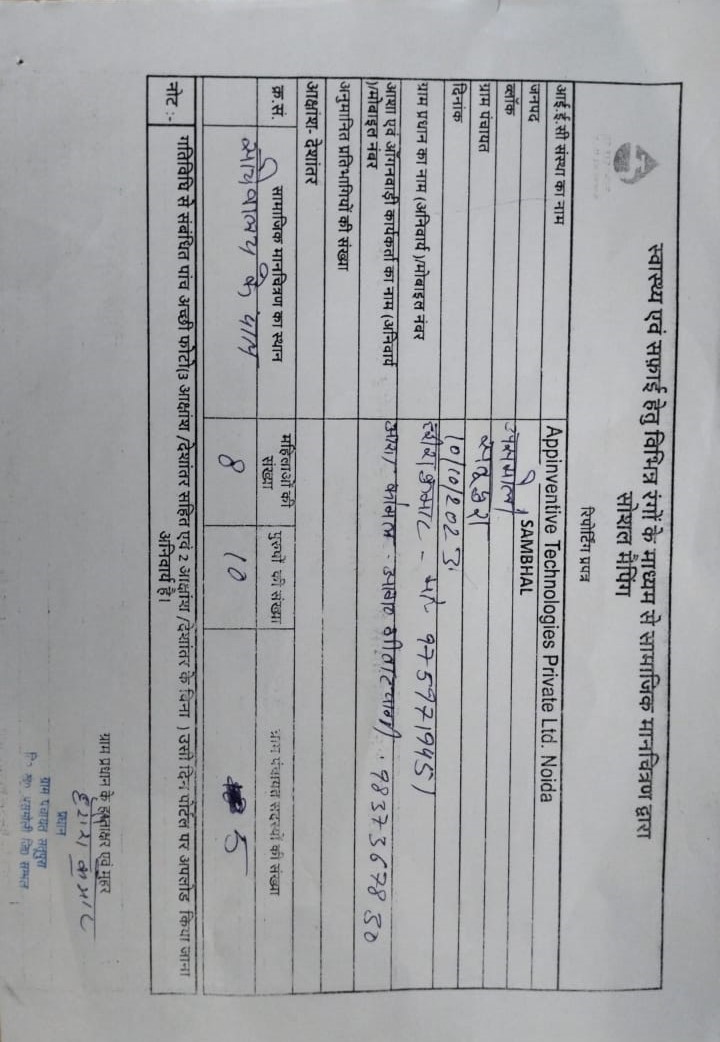 स्वास्थ्य एवं सफ़ाई हेतु विभिन्न रंगों के माध्यम से सामाजिक मानचित्रण द्वारा
सोशल मैपिंग
रिपोर्टिंग प्रपत्र
आई.ई.सी संस्था का नाम Appinventive Technologies Private Ltd. Noida
जनपद SAMBHAL
ब्लॉक
ग्राम पंचायत
दिनांक 10/10/2023
ग्राम प्रधान का नाम (अनिवार्य )/मोबाइल नंबर कुमार - 9759719451
आशा एवं आँगनवाड़ी कार्यकर्ता का नाम (अनिवार्य
)/मोबाइल नंबर आशा 9837367830
अनुमानित प्रतिभागियों की संख्या
आक्षांश- देशांतर
क्र.सं. सामाजिक मानचित्रण का स्थान महिलाओं की संख्या पुरुषों की संख्या ग्राम पंचायत सदस्यों की संख्या
के पास 8 10 5
नोट :- गतिविधि से संबंधित पांच अच्छी फोटो(3 आक्षांश /देशांतर सहित एवं 2 आक्षांश /देशांतर के बिना ) उसी दिन पोर्टल पर अपलोड किया जाना
अनिवार्य है।
ग्राम प्रधान के हस्ताक्षर एवं मुहर
प्रधान